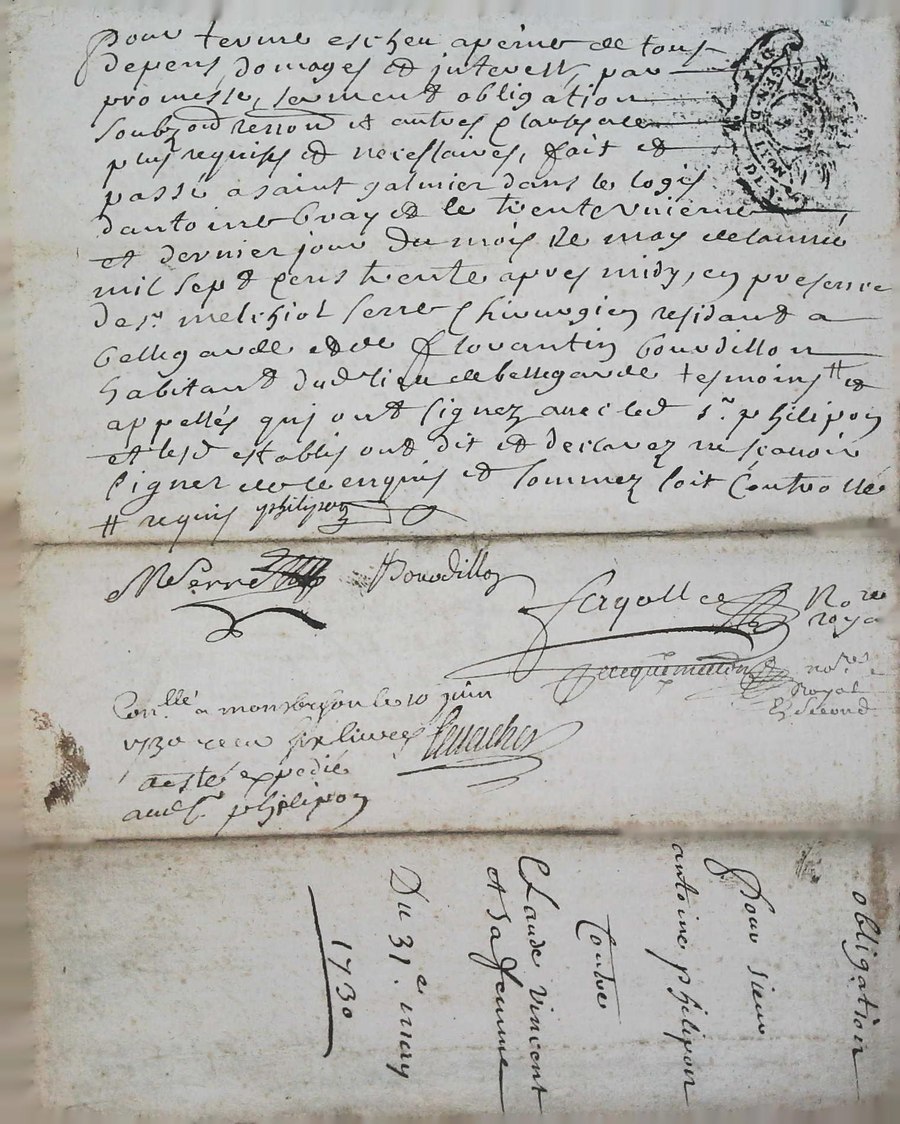 pour terme escheu apeine de tous
depens domages et interest, par
promesse, serment obligation
soubz

 et autres clauses
plus requises et necessaires, fait et
passé a saint galmier dans le logis
dantoine Gray et le trente unieme
et dernier jour du mois de may delanné
mil sept cens trente apres midy, en presence
de sr. melchiol serre chirurgien residant a
bellegarde et de florantin bourdillon
habitant dud. lieu de bellegarde tesmoins # et
appellés qui ont signez avec led sr. philipon
et lesd establis ont dit et declarez ne scavoir
signer de ce enquis et sommez soit Controllé
# requis philipon
MSerre Bourdillon
No.re
royal
no.re
Royal
Second
Con.llé a montbrison le 10 juin
1730 receu six livres
a esté expedié
aud Sr. philipon
obligation
Pour sieur
antoine philipon
Contre
Claude Vincent
et sa femme
Du 31.e may
1730
GEN. DE LYON
DIX